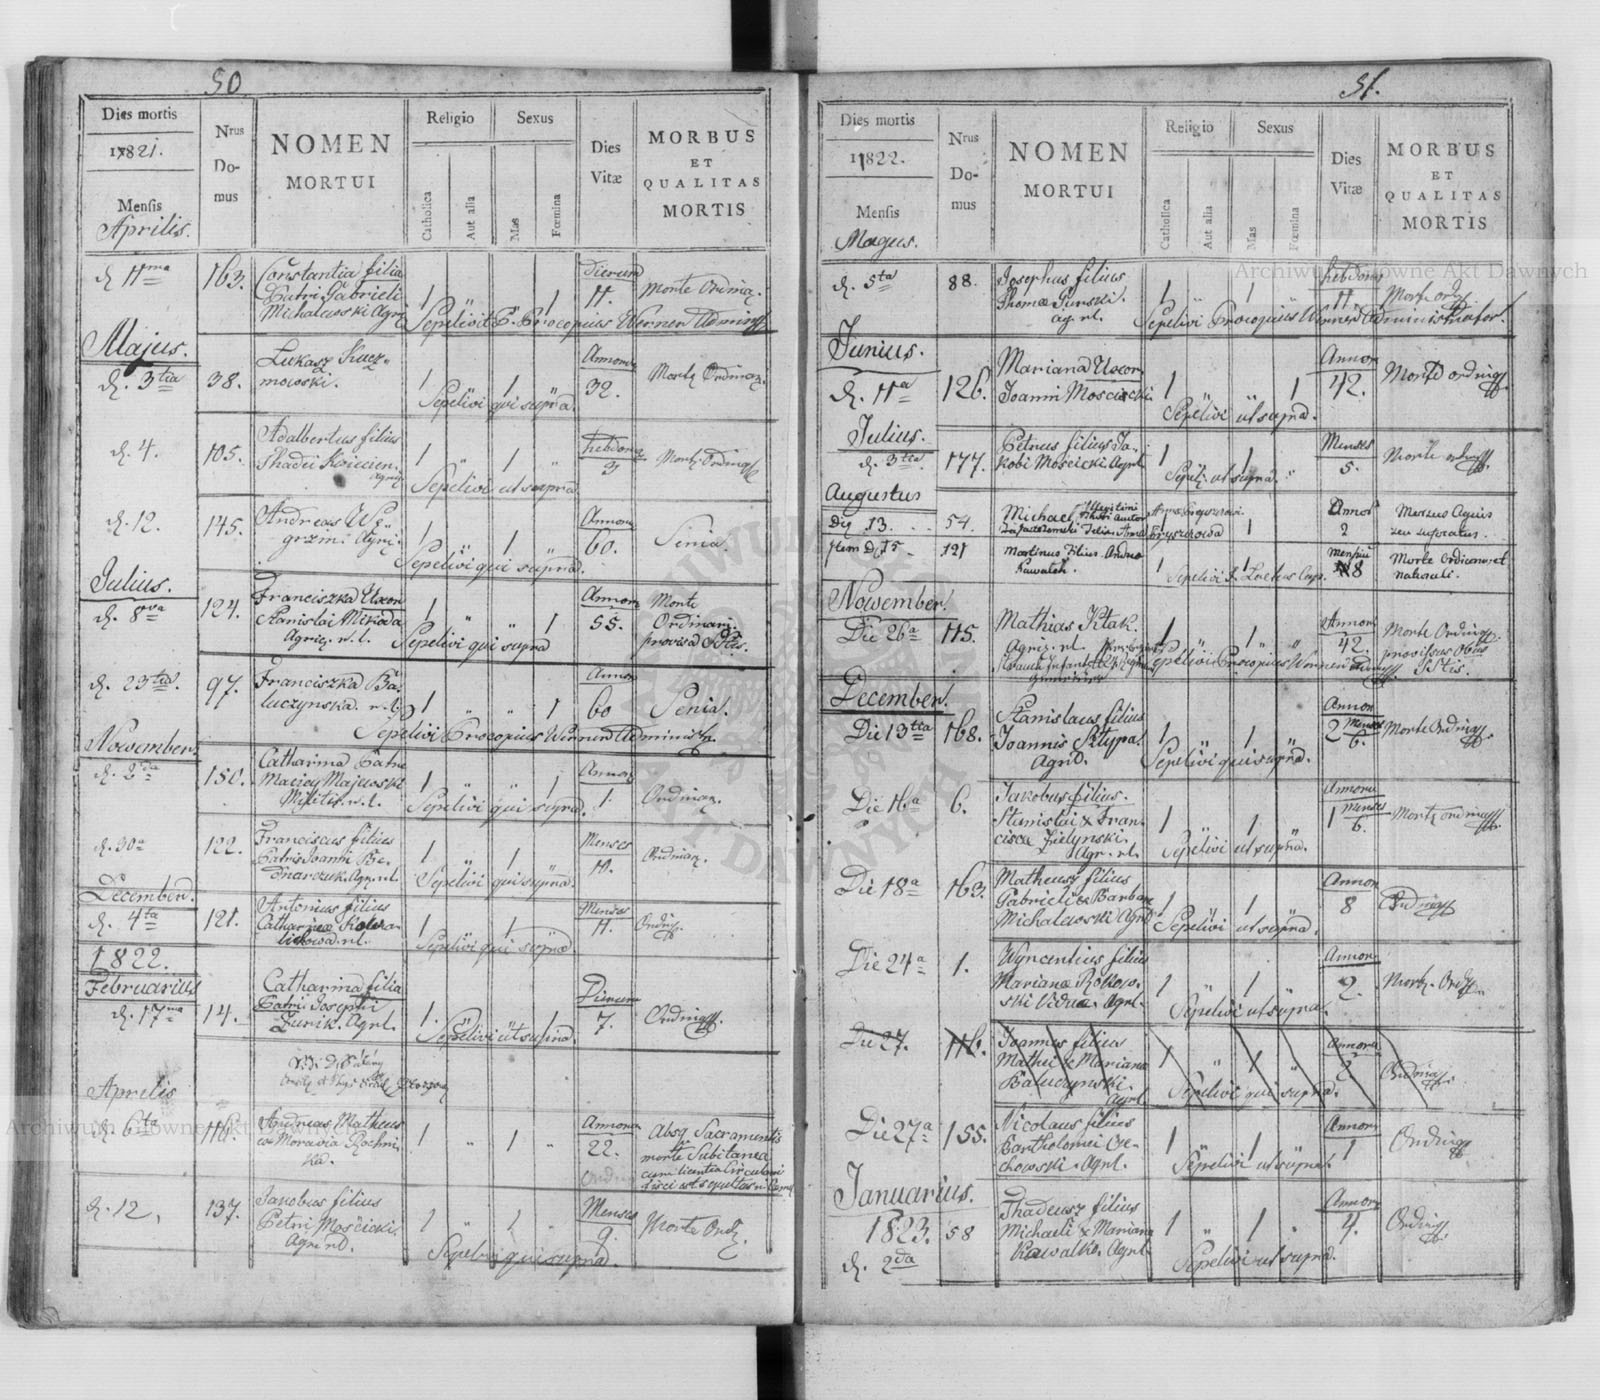 50
Dies mortis
1821.
Mensis
Aprilis.
Nrus
Do-
mus
NOMEN
MORTUI
Religio
Catholica
Aut alia
Sexus
Mas
Fœmina
Dies
Vitæ
MORBUS
ET
QUALITAS
MORTIS
d. 11ma
163.
Constantia filia
Patri Gabrieli
Michalewski Agric
1 " " 1
dierum
11.
Morte Ordinar.
Sepelivit P. Procopius Werner Admin
Majus.
d. 3tia
38.
Lukasz Kucz-
mowski.
1 " 1
Annorum
32.
Morte Ordinar.
Sepelivi qui supra.
d. 4.
105.
Adalbertus filius
Thadei
1 " 1 "
hebdom.
3
Morte Ordin
Sepelivi ut supra
d. 12.
145.
Andreas Wę-
grzin. Agric.
1 " 1 "
Annor.
60.
Senia.
Sepelivi qui supra.
Julius.
d. 8va
124.
Franciszka Uxor
Stanislai Mikoda
Agric. r. l.
1 " " 1
Annor
55.
Morte
Ordinari.
provisa
Sepelivi qui supra
d. 23tia.
97.
Franciszka Ba-
luczynska. r. l.
1 " " 1
Annor
60
Senia.
Sepelivi Procopius Werner Administr.
Nowember.
d. 2da
150.
Catharina Patre
Maciey Majewski
Militis. r. l.
1 " " 1
Annor
1.
Ordinar.
Sepelivi qui supra.
d. 30a
122.
Franciscus filius
Patris Joanni Be-
dnarczuk. Agr. r. l.
1 " 1
Menses
10.
Ordinar.
Sepelivi qui supra.
December.
d. 4ta
121.
Antonius filius
Catharinæ
r. l.
1 " 1
Menses
11.
Ordin.
Sepelivi qui supra
1822.
Februarius
d. 17ma
14.
Catharina filia
Patri Josephi
Zurik. Agrl.
1. " " 1
Dierum
7.
Ordin.
Sepelivi ut supra
Aprelis
d. 6ta
116.
Andreas Matheus
ex Moravia
1 " 1 "
Annorum
22.
Absq Sacramentis
morte Subitanea
cum licentia Circulari
d. 12,
137.
Jacobus filius
Petri Mościcki.
Agric
1 " 1 "
Menses
9.
Morte Ord.
Sepelivi qui supra.
51.
Dies mortis
1822.
Mensis
Magus.
Nrus
Do-
mus
NOMEN
MORTUI
Religio
Catholica
Aut alia
Sexus
Mas
Fœmina
Dies
Vitæ
MORBUS
ET
QUALITAS
MORTIS
d. 5ta
88.
Josephus filius
Thomæ Gurski.
ag. rl.
1 " 1 "
hebdom
11.
Morte ord
Sepelivi Procopius Werner Administrator.
Junius.
d. 11a
126.
Mariana Uxor
Joanni Moscicki
1 " 1
Annor
42.
Morte ordin
Sepelivi ut supra.
Julius.
d. 3tia.
177.
Petrus filius Ja-
kobi Mościcki Agrl.
1 1
Menses
5.
Morte ordin
Sepel. ut supra. "
Augustus
Die 13.
54.
Michael Illegitimi
1
Annor
2
Mersus Aquis
seu suffocatus.
Item D. 15
121
Martinus Filius
Kawalek.
1 1
Mensium
8
Morte Ordinar. et
naturali.
Nowember.
Die 26a
115.
Mathias Ptak.
Agric. rl.
1 " 1 "
Annor
42.
Morte Ordin
provisus
Sepelivi Procopius Werner
December.
Die 13tia
168.
Stanislaus filius
Joannis Sztypa.
Agrid.
1 " 1 "
Annor
2 Menses
6.
Morte Ordin
Sepelivi qui supra.
Die 16a
6.
Jakobus filius.
Stanislai & Fran-
ciscæ Zielynski.
Agr. rl.
1 " 1 "
Annoru
1 Menses
6.
Morte ordin
Sepelivi ut supra.
Die 18a
163.
Matheusz filius
Gabrieli & Barbaræ
Michalewski Agrl
1 " 1
Annor
8
Ordin
Sepelivi ut supra.
Die 24a
1.
Wyncentius filius
Mariana Rokow-
ski Viduæ. Agrl.
1 " 1
Annor
2.
Morte. Ord
Sepelivi ut supra
Die 27.
116.
Joannes filius
Mathei & Mariana
Baluczynski.
Agrl
1 " 1
Annoru
2
Ordin
Sepelivi qui supra.
Die 27a
155.
Nicolaus filius
Bartholomei Cze-
chowski. Agrl.
1 " 1 "
Annor
1
Ordin
Sepelivi ut supra.
Januarius.
1823.
d. 2da
58
Thadeusz filius
Michaeli & Mariana
Kawalko. Agrl.
1 " 1 "
Annor
4.
Ordin
Sepelivi ut supra.
Archiwum Główne Akt Dawnych
Archiwum Główne Akt Dawnych